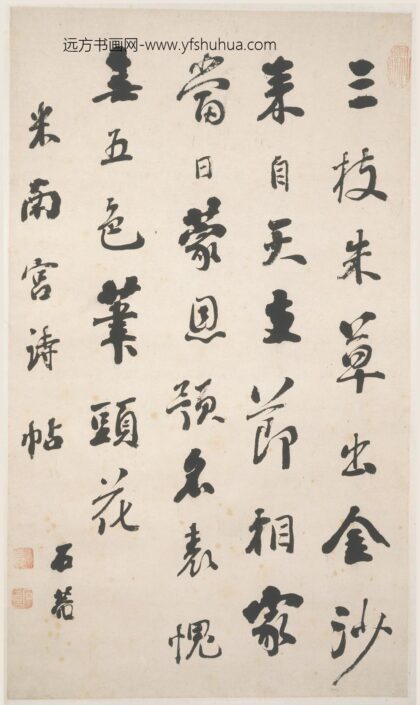 远方书画网-www.yfshuhua.com
三枝朱草出金沙
来自天支節相家
當日蒙恩預名表愧
無五色筆頭花
米南宮詩帖
石菴